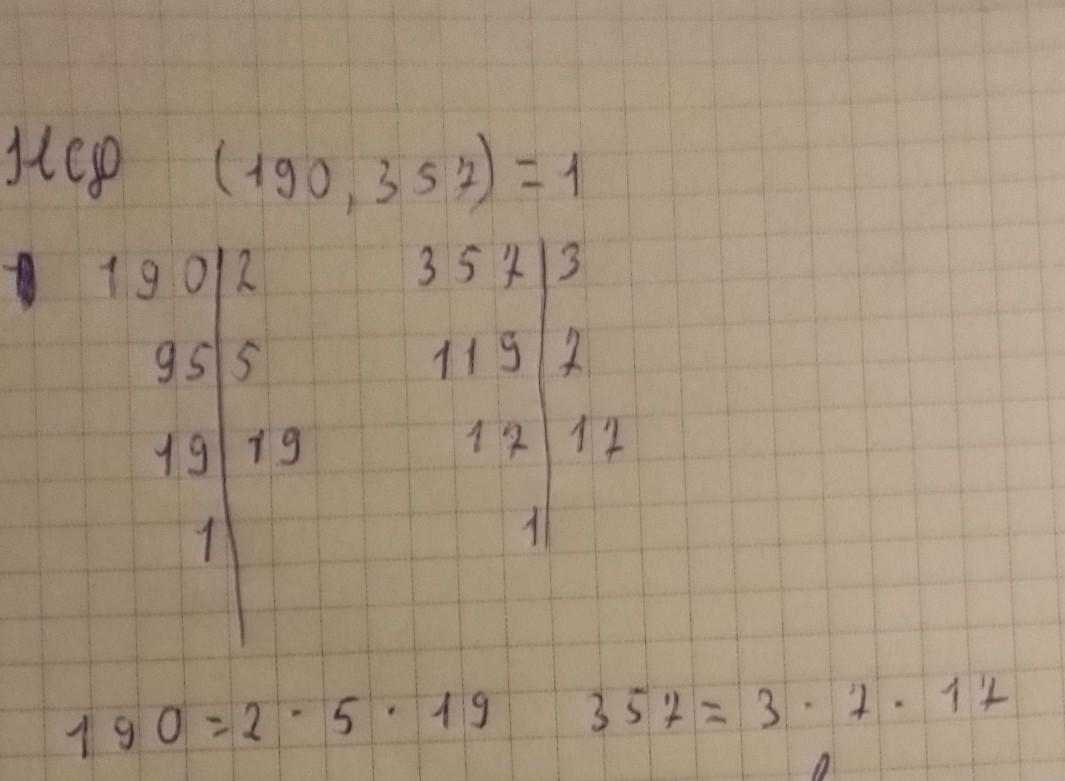 НСД (190, 357) = 1
190 | 2 357 | 3
95 | 5 119 | 7
19 | 19 17 | 17
1 | 1 |
190 = 2 · 5 · 19 357 = 3 · 7 · 17